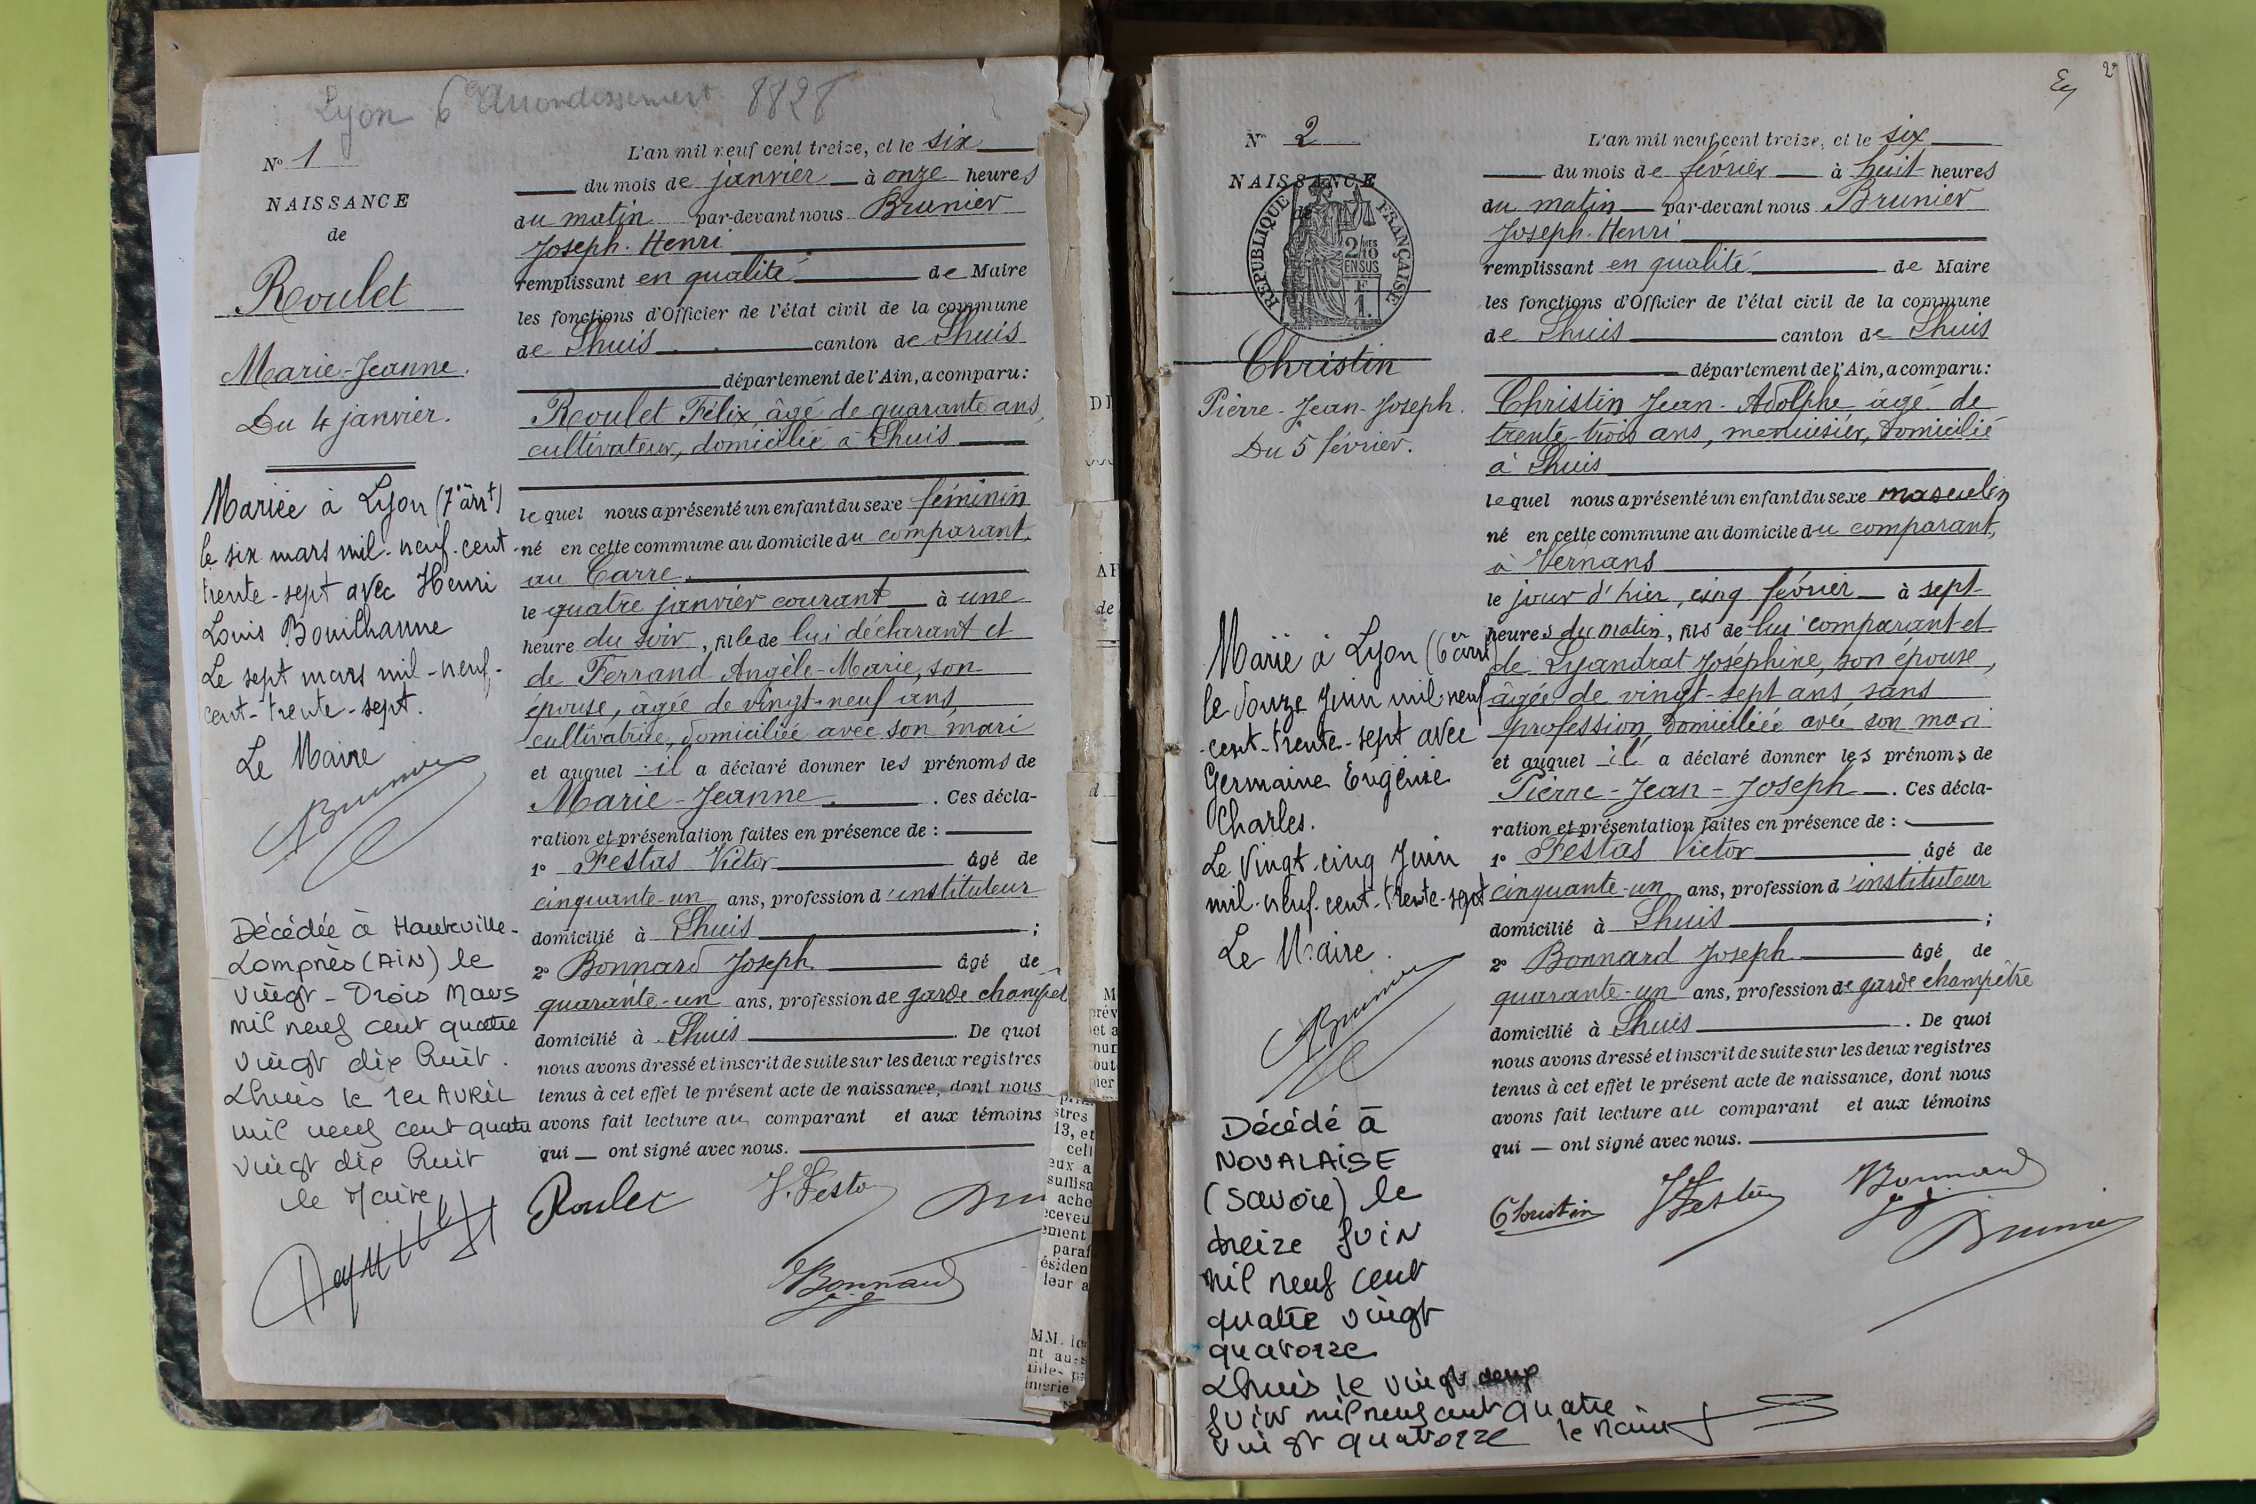 Lyon 6e Arrondissement 8828
N° 1
NAISSANCE
de
Roulet
Marie-Jeanne.
Du 4 janvier.
Mariée à Lyon (7e arrt)
le six mars mil-neuf-cent
trente-sept avec Henri
Louis Bouilhanne
Le sept mars mil-neuf-
cent-trente-sept.
Le Maire
Brunier
Décédée à Hauteville-
Lompnès (AIN) le
vingt-trois Mars
mil neuf cent quatre
vingt dix huit.
Lhuis le 1er AVRIL
mil neuf cent quatre
vingt dix huit
le Maire
L'an mil neuf cent treize, et le six
du mois de janvier à onze heures
du matin par-devant nous Brunier
Joseph-Henri
remplissant en qualité de Maire
les fonctions d'Officier de l'état civil de la commune
de Lhuis canton de Lhuis
département de l'Ain, a comparu:
Roulet Félix, âgé de quarante ans,
cultivateur, domicilié à Lhuis
lequel nous a présenté un enfant du sexe féminin
né en cette commune au domicile du comparant,
au Carre
le quatre janvier courant à une
heure du soir, fille de lui déclarant et
de Ferrand Angèle-Marie, son
épouse, âgée de vingt-neuf ans,
cultivatrice, domiciliée avec son mari
et auquel il a déclaré donner les prénoms de
Marie-Jeanne. Ces décla-
ration et présentation faites en présence de :
1° Festas Victor âgé de
cinquante-un ans, profession d'instituteur
domicilié à Lhuis ;
2° Bonnard Joseph âgé de
quarante-un ans, profession de garde champêt
domicilié à Lhuis. De quoi
nous avons dressé et inscrit de suite sur les deux registres
tenus à cet effet le présent acte de naissance, dont nous
avons fait lecture au comparant et aux témoins
qui — ont signé avec nous.
Roulet V. Festas
Bonnard
N° 2
NAISSANCE
de
RÉPUBLIQUE FRANÇAISE
2/10 MES
EN SUS
F
1.
Christin
Pierre-Jean-Joseph.
Du 5 février.
Marié à Lyon (6e arrt)
le douze Juin mil-neuf
-cent-trente-sept avec
Germaine Eugénie
Charles.
Le Vingt-cinq Juin
mil-neuf-cent-trente-sept
Le Maire.
Brunier
Décédé à
NOVALAISE
(Savoie) le
treize JUIN
mil neuf cent
quatre vingt
quatorze
Lhuis le vingt deux
JUIN mil neuf cent quatre
vingt quatorze le Maire
2
L'an mil neuf cent treize, et le six
du mois de février à huit heures
du matin par-devant nous Brunier
Joseph-Henri
remplissant en qualité de Maire
les fonctions d'Officier de l'état civil de la commune
de Lhuis canton de Lhuis
département de l'Ain, a comparu:
Christin Jean-Adolphe âgé de
trente-trois ans, menuisier, domicilié
à Lhuis
lequel nous a présenté un enfant du sexe masculin
né en cette commune au domicile du comparant,
à Vernans
le jour d'hier, cinq février à sept
heures du matin, fils de lui comparant et
de Lyandrat Joséphine, son épouse,
âgée de vingt-sept ans, sans
profession, domiciliée avec son mari
et auquel il a déclaré donner les prénoms de
Pierre-Jean-Joseph. Ces décla-
ration et présentation faites en présence de :
1° Festas Victor âgé de
cinquante-un ans, profession d'instituteur
domicilié à Lhuis ;
2° Bonnard Joseph âgé de
quarante-un ans, profession de garde champêtre
domicilié à Lhuis. De quoi
nous avons dressé et inscrit de suite sur les deux registres
tenus à cet effet le présent acte de naissance, dont nous
avons fait lecture au comparant et aux témoins
qui — ont signé avec nous.
Christin V. Festas Bonnard
Brunier